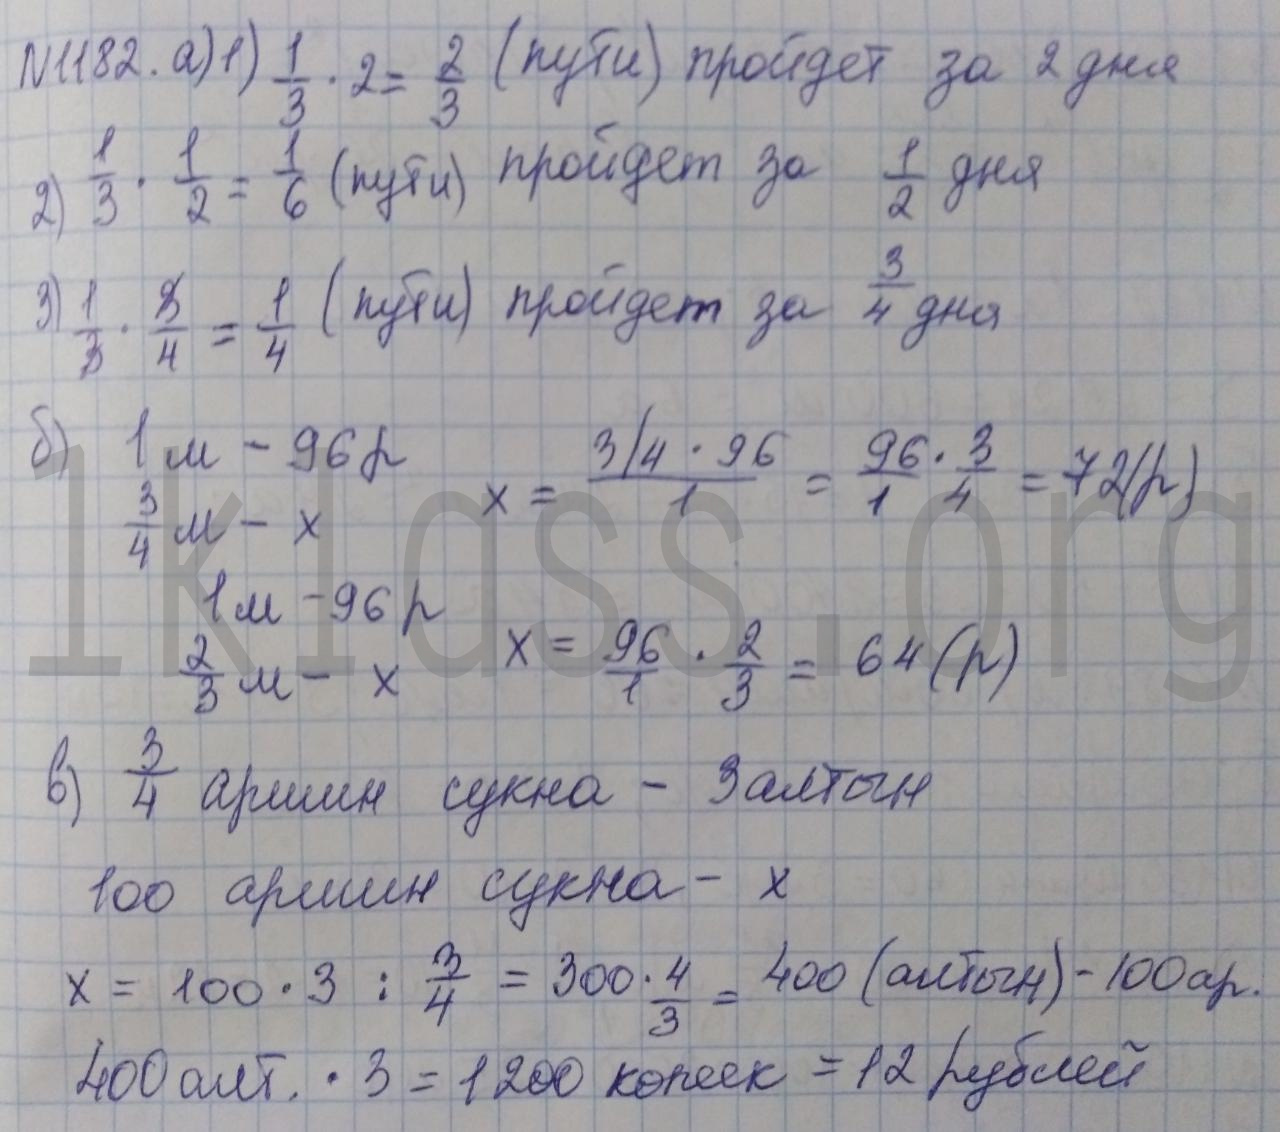 N1182. а) 1) 1/3 · 2 = 2/3 (пути) пройдет за 2 дня
2) 1/3 · 1/2 = 1/6 (пути) пройдет за 1/2 дня
3) 1/3 · 3/4 = 1/4 (пути) пройдет за 3/4 дня
б) 1 м - 96 р
3/4 м - х
х = 3/4 · 96 / 1 = 96/1 · 3/4 = 72 (р)
1 м - 96 р
2/3 м - х
х = 96/1 · 2/3 = 64 (р)
в) 3/4 аршин сукна - 3 алтын
100 аршин сукна - х
х = 100 · 3 : 3/4 = 300 · 4/3 = 400 (алтын) - 100 ар.
400 алт. · 3 = 1200 копеек = 12 рублей
1klass.org